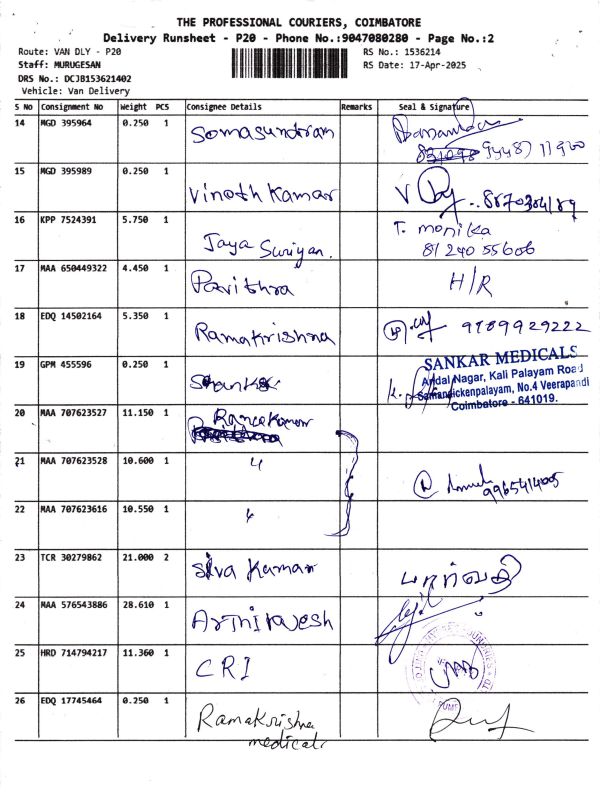 THE PROFESSIONAL COURIERS, COIMBATORE
Delivery Runsheet - P20 - Phone No.:9047080280 - Page No.:2
Route: VAN DLY - P20
Staff: MURUGESAN
DRS No.: DCJB153621402
Vehicle: Van Delivery
RS No.: 1536214
RS Date: 17-Apr-2025
S No Consignment No Weight PCS Consignee Details Remarks Seal & Signature
14 MGD 395964 0.250 1 Somasundram
9448711920
15 MGD 395989 0.250 1 Vinoth Kamar
16 KPP 7524391 5.750 1 Jaya Suriyan. T. monika
81240 55606
17 MAA 650449322 4.450 1 Pavithra H/R
18 EDQ 14502164 5.350 1 Ramakrishna 9789929222
19 GPM 455596 0.250 1
SANKAR MEDICALS
Andal Nagar, Kali Palayam Road
Samanaickenpalayam, No.4 Veerapandi
Coimbatore - 641019.
20 MAA 707623527 11.150 1
21 MAA 707623528 10.600 1 "
9965414005
22 MAA 707623616 10.550 1 "
23 TCR 30279862 21.000 2 Siva Kumar பார்வதி
24 MAA 576543886 28.610 1
25 HRD 714794217 11.360 1 CRI
26 EDQ 17745464 0.250 1 Ramakrishna
medical